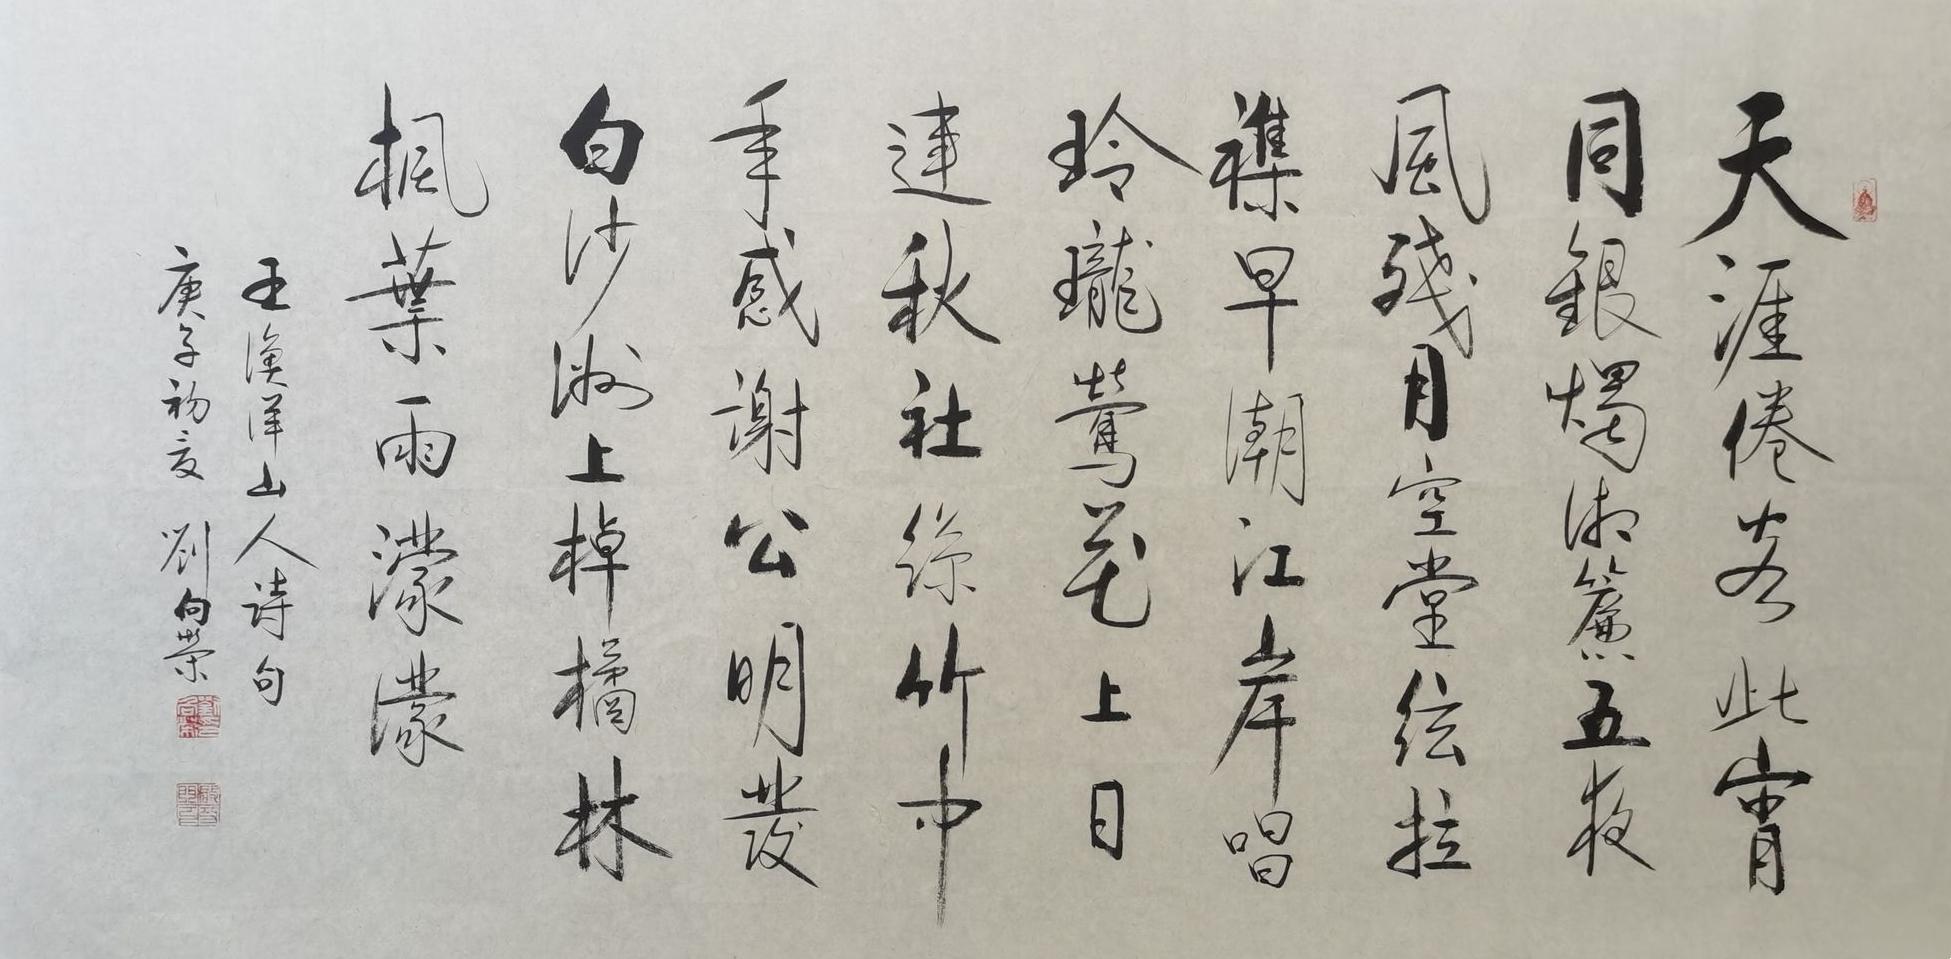 天涯倦客此宵
同銀燭湘簾五夜
風残月空堂弦拉
襍早潮江岸唱
玲瓏鶯花上日
連秋社絲竹中
年感謝公明發
白沙洲上棹橘林
楓葉雨濛濛
王漁洋山人詩句
庚子初夏 劉向榮